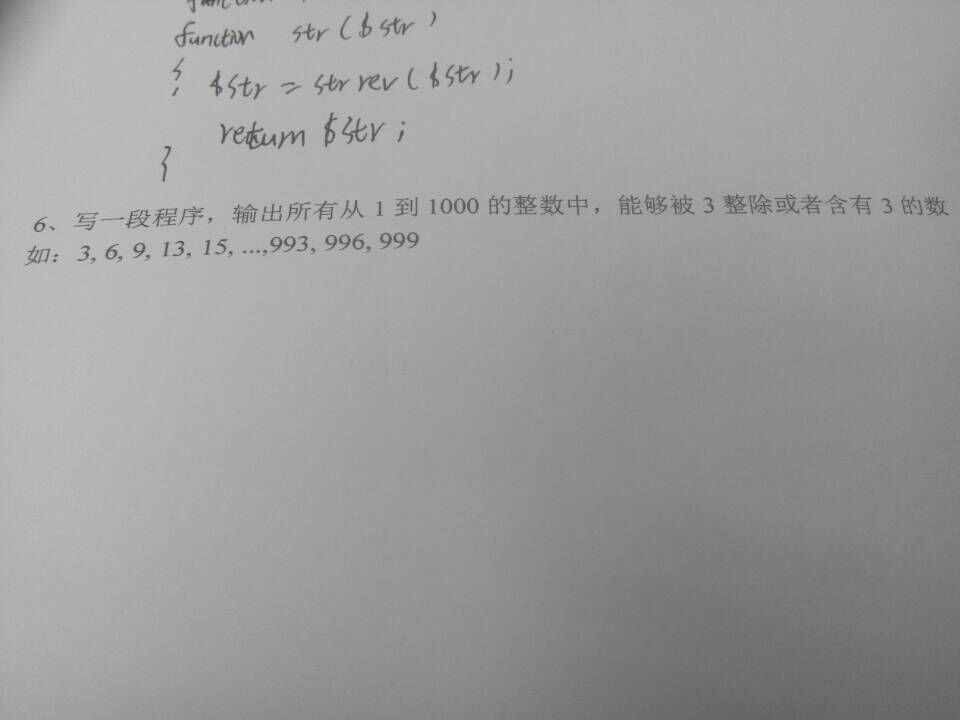 function str($str)
{ $str = strrev($str);
return $str;
}
6、写一段程序，输出所有从 1 到 1000 的整数中，能够被 3 整除或者含有 3 的数
如：3, 6, 9, 13, 15, ...,993, 996, 999